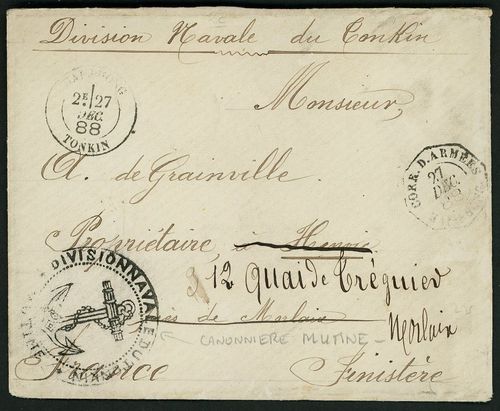 Division Navale du Tonkin
2E 27
DEC.
88
TONKIN
Monsieur,
CORR. D. ARMEES
27
DEC.
A. de Grainville
Propriétaire, à Henvic
DIVISION NAVALE DU TONKIN
12 Quai de Tréguier
près de Morlaix
Morlaix
CANONNIERE MUTINE
France Finistère